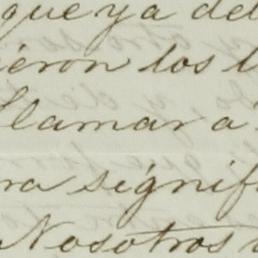 que ya de
ieron los l
llamar a
ra signif
Nosotros